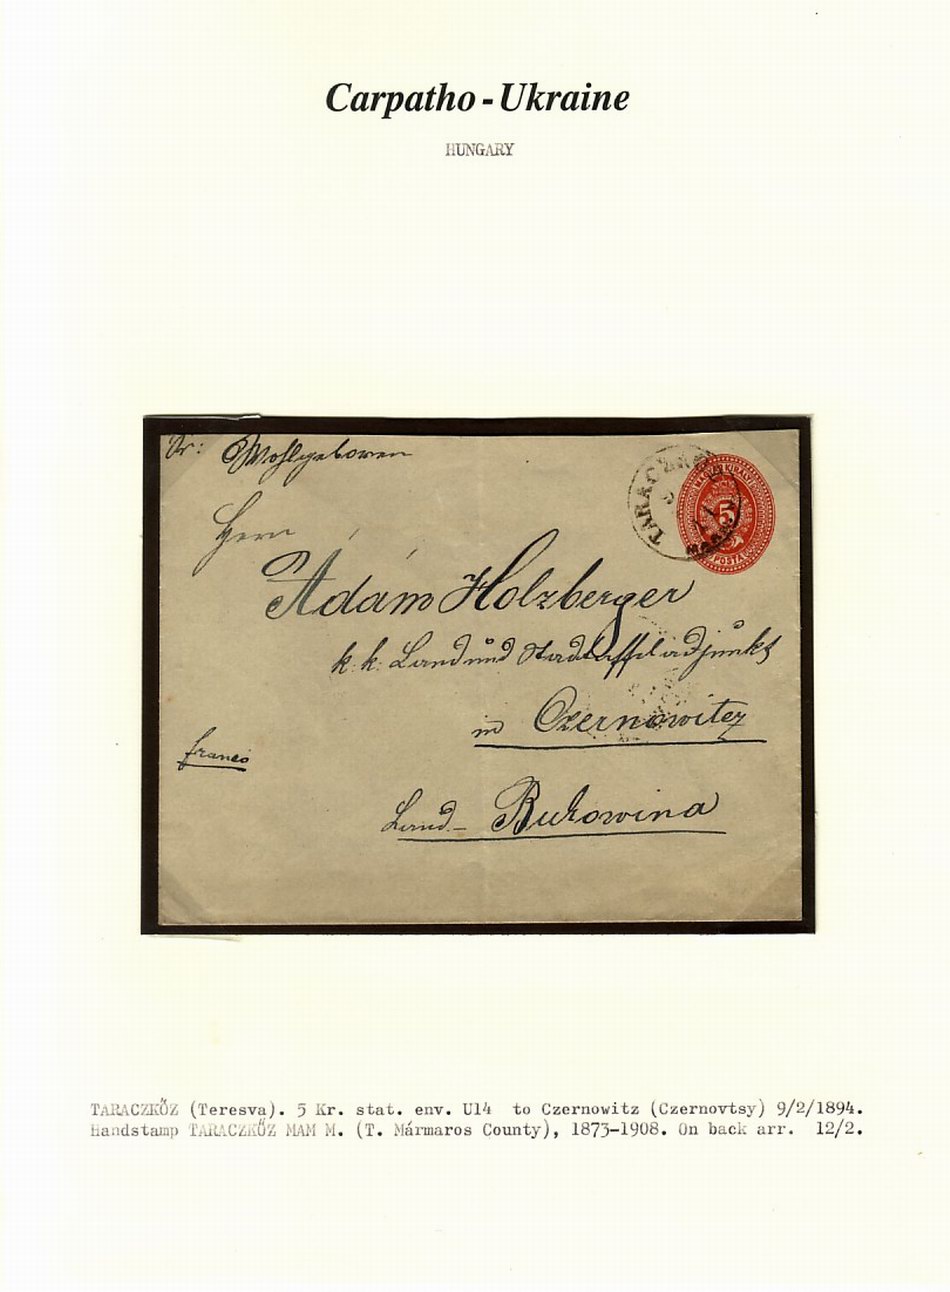 Carpatho - Ukraine
HUNGARY
Sr: Wohlgeboren
Herrn
Adám Holzberger
k. k. Land und Stadttaffeladjunkt
in Czernowitz
franco
Land - Bukowina
TARACZKŐ
MAGYAR KIRÁLYI
5
POSTA
TARACZKŐZ (Teresva). 5 Kr. stat. env. U14 to Czernowitz (Czernovtsy) 9/2/1894.
Handstamp TARACZKŐZ MAM M. (T. Mármaros County), 1873-1908. On back arr. 12/2.